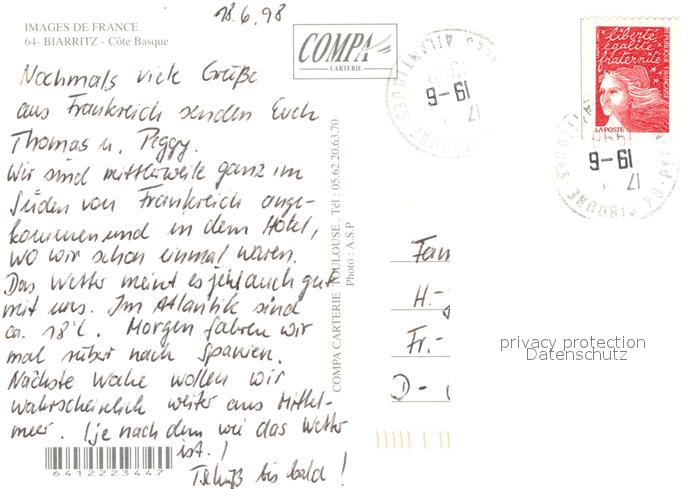 18.6.98
IMAGES DE FRANCE
64- BIARRITZ - Côte Basque
COMPA
CARTERIE
Nochmals viele Grüße
aus Frankreich senden Euch
Thomas u. Peggy.
Wir sind mittlerweile ganz im
Süden von Frankreich ange-
kommen und in dem Hotel,
wo wir schon einmal waren.
Das Wetter meint es jetzt auch gut
mit uns. Im Atlantik sind
ca. 18°C. Morgen fahren wir
mal rüber nach Spanien.
Nächste Woche wollen wir
wahrscheinlich weiter ans Mittel-
meer. (je nach dem wie das Wetter
ist.)
Tschüß bis bald!
6412223447
COMPA CARTERIE TOULOUSE. Tél : 05.62.20.63.70
Photo : A.S.P
liberté
égalité
fraternité
RÉPUBLIQUE FRANÇAISE
LA POSTE
17
19-6
1998
17
19-6
1998
Fam
H.-
Fr.-
D-
privacy protection
Datenschutz